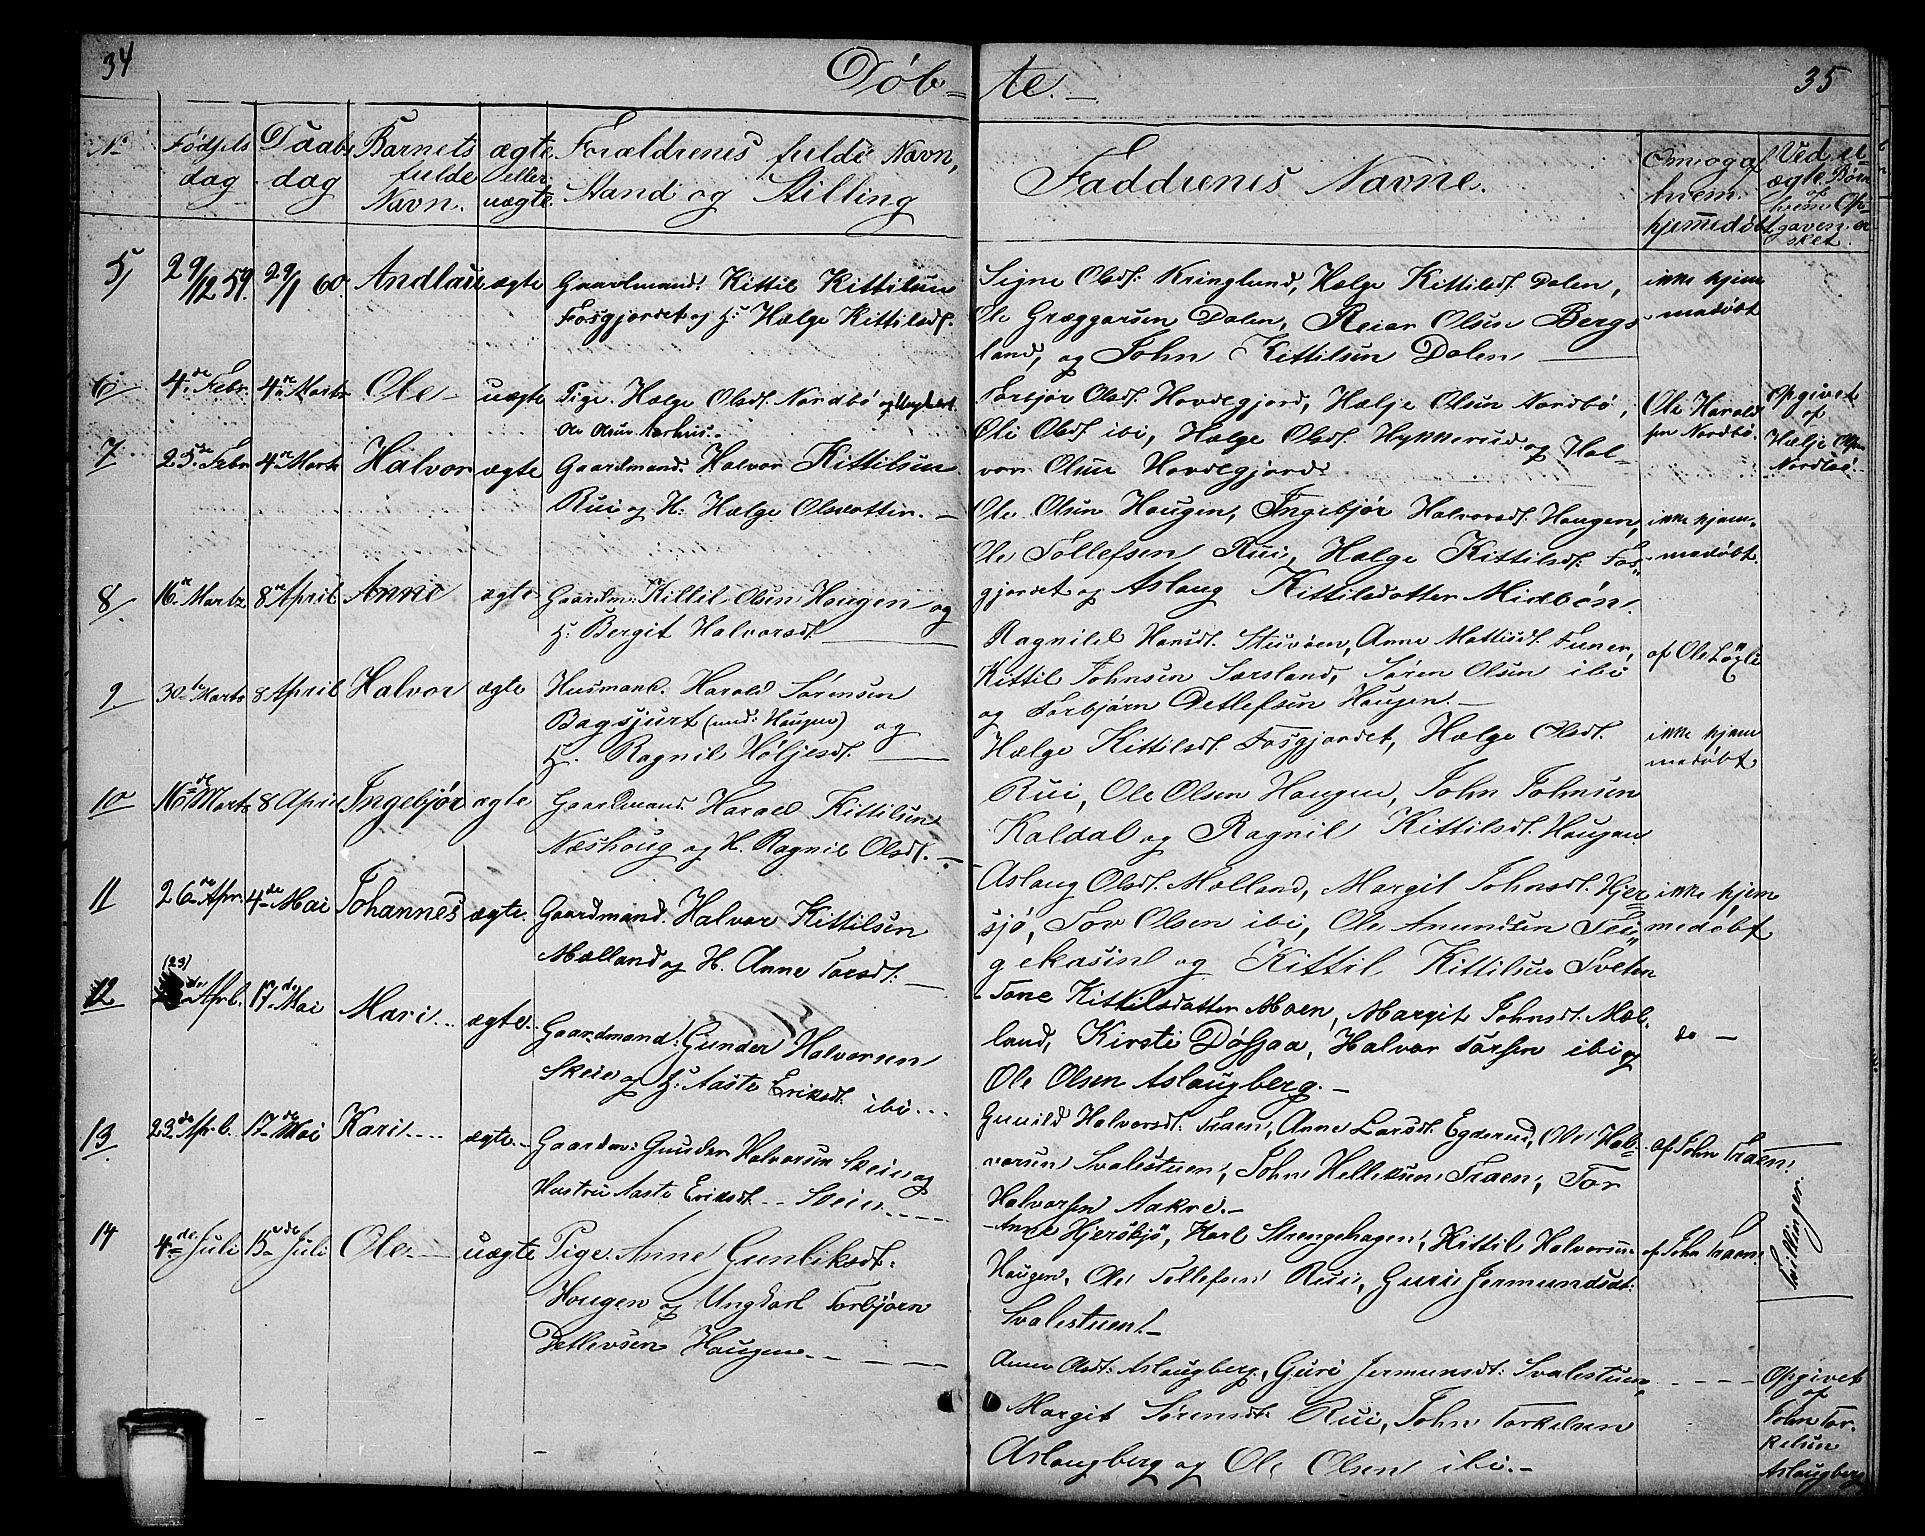 34
Døb-
te.-
35
No
Fødsels
dag
Daabs
dag
Barnets
fulde
Navn.
ægte
eller
uægte.
Forældrenes fulde Navn,
Stand og Stilling
Faddrenes Navne.
Om og af
hvem
hjemmedøbt
Ved u-
ægte Børn
af
hvem Op-
gaven er
sket.
5, 29/12 59. 29/1 60. Andlau ægte Gaardmand. Kittil Kittilsen
Fosgjordet og H: Hælge Kittilsdt.
Signe Olsdt: Kringlund, Hælge Kittilsdt. Dalen,
Ole Græggarsen Dalen, Reiar Olsen Bergs-
land, og John Kittilsen Dalen
ikke hjem
medøbt
6 4.de Febr. 4.de Marts Ole uægte Pige. Hælge Olsdt. Nordbø og Ungkarl.
Ole Olsen Aarhus.
Torbjør Olsdt. Hovdegjord, Hælje Olsen Nordbø,
Oli Olsdt ibi, Hælge Olsdt. Hykkerud og Hal-
vor Olsen Hovdegjord.
Ole Harald
sen Nordbø.
Opgivet
af
Hælje Olsen
Nordbø.
7. 25.de Febr. 4.de Marts Halvor ægte Gaardmand. Halvor Kittilsen
Rui og H: Hælge Olsdatter.
Ole Olsen Haugen, Ingebjør Halvorsdt. Haugen,
Ole Tollefsen Rui, Hælge Kittilsdt. Fos-
gjordet og Aslaug Kittilsdatter Midbøn.
ikke hjem-
medøbt.
8. 16.de Marts 8.de April Anne ægte Gaardm: Kittil Olsen Haugen og
H: Bergit Halvorsdt.
Ragnild Hansdt. Stuvøen, Anne Mattisdt. Funer,
Kittil Johnsen Sarsland, Søren Olsen ibi
og Torbjørn Detlefsen Haugen.-
af Ole Løgli
9. 30.te Marts 8 April Halvor ægte Husmand. Harold Sørensen
Bagsjurt (und: Haugen) og
H. Ragnil Høljesdt.
Hælge Kittilsdt. Fosgjordet, Hælge Olsdt.
Rui, Ole Olsen Haugen, John Johnsen
Kaldal og Ragnil Kittilsdt. Haugen.
ikke hjem
medøbt
10 16.de Marts 8 April Ingebjør ægte Gaardmand. Harald Kittilsen
Næshoug og H. Ragnil Olsdt.
Aslaug Olsdt. Mælland, Margit Johnsdt. Hjer-
sjø, Tov Olsen ibi, Ole Amundsen Tei-
gekasin og Kittil Kittilsen Tveten
ikke hjem
medøbt
11 26.de Apr. 4.de Mai Johannes ægte. Gaardmand. Halvor Kittilsen
Mælland og H. Anne Torsdt.
Tone Kittilsdatter Moen, Margit Johnsdt. Mæl-
land, Kirsti Døsjaa, Halvor Torsen ibi og
Ole Olsen Aslaugberg.-
do -
12 (23) de Aprb. 17.de Mai Mari... ægte. Gaardmand: Gunder Halvorsen
Skeie og H: Aaste Eriksdt. ibi...
Gunild Halvorsdt. Traen, Anne Larsdt. Egderud, Ole Hal-
vorsen Svalestuen, John Helliksen Traen, Tor
Halvorsen Aakre.-
af John Traen.
13. 23.de Aprb. 17.de Mai Kari.... ægte.. Gaardm: Gunder Halvorsen Skeie og
Hustru Aaste Eriksdt.. Skeie....
-Anne Hjersøsjø, Karl Strengehagen, Kittil Halvorsen
Haugen, Ole Tollefsen Rui, Guri Jermundsdt:
Svalestuen.-
af John Traen.
Tvillinger.
14 4.de Juli 15.de Juli Ole uægte Pige. Anne Gunliksdt:
Haugen og Ungkarl Torbjørn
Detlevsen Haugen.
Anne Olsdt: Aslaugberg, Guri Jermunsdt: Svalestuen
Margit Sørensdt: Rui, John Torkelsen
Aslaugberg og Ole Olsen ibi.-
Opgivet
af
John Tor-
kelsen
Aslaugberg